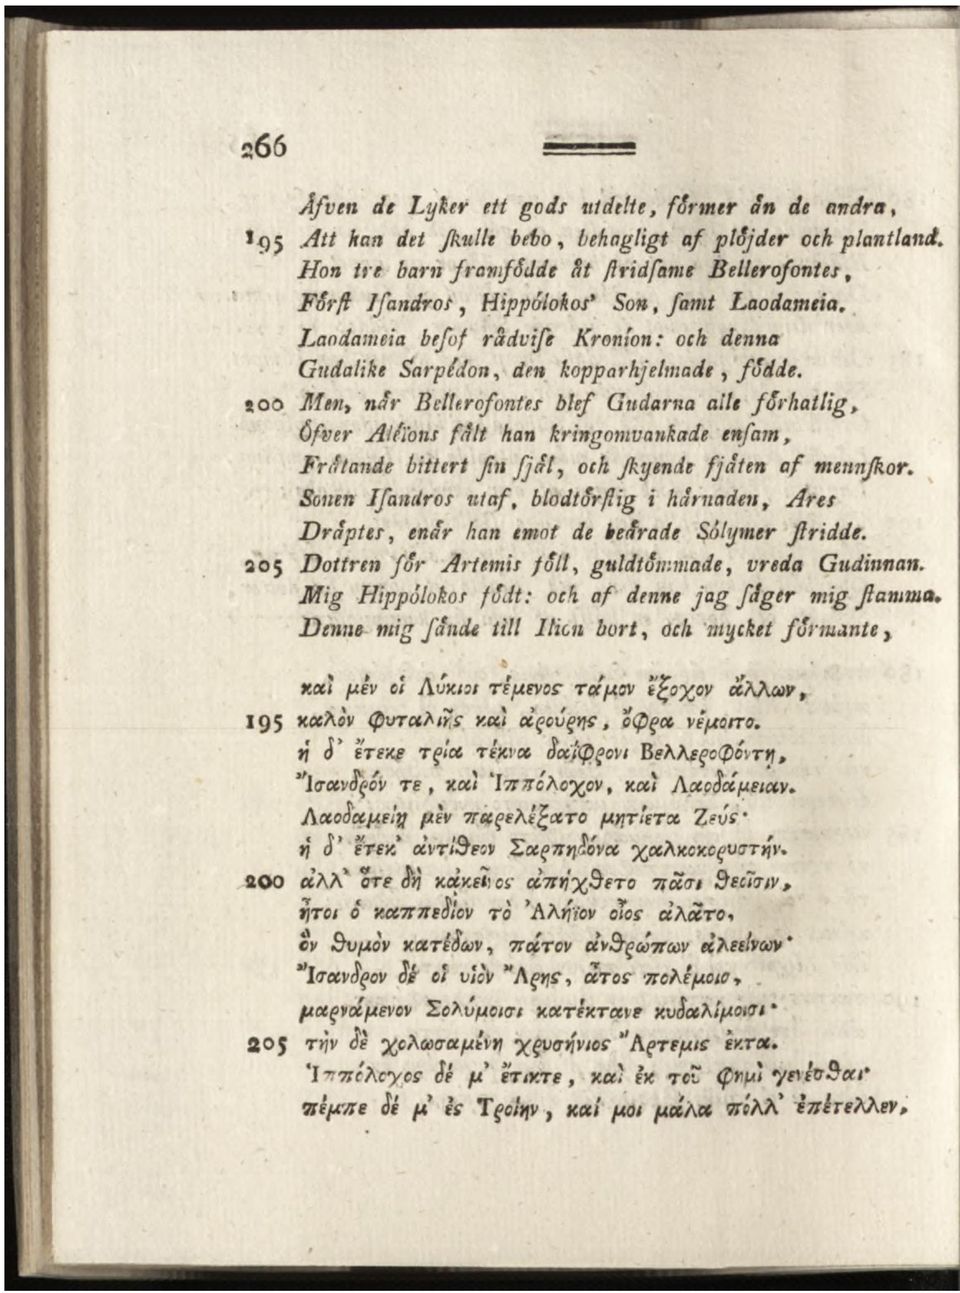 266
Åfven de Lyker ett gods utdelte, förmer än de andra,
195 Att han det ſkulle bebo, behagligt af plöjder och plantland.
Hon tre barn framfödde åt ſtridſame Bellerofontes,
Förſt Iſandros, Hippólokos' Son, ſamt Laodameia.
Laodameia beſof rådviſe Kroníon: och denna
Gudalike Sarpédon, den kopparhjelmade, födde.
200 Men, når Bellerofontes blef Gudarna alle förhatlig,
Öfver Aléïons fält han kringomvankade enſam,
Frätande bittert ſin ſjäl, och ſkyende fjäten af mennſkor.
Sonen Iſandros utaf, blodtörſtig i härnaden, Ares
Dräptes, enär han emot de beärade Sólymer ſtridde.
205 Dottren för Artemis föll, guldtömmade, vreda Gudinnan.
Mig Hippólokos födt: och af denne jag ſäger mig ſtamma.
Denne mig ſände till Ilion bort, och mycket förmante,
καὶ μέν οἱ Λύκιοι τέμενος τάμον ἔξοχον ἄλλων,
195 καλὸν φυταλιῆς καὶ ἀρούρης, ὄφρα νέμοιτο.
ἡ δ' ἔτεκε τρία τέκνα δαΐφρονι Βελλεροφόντῃ,
Ἴσανδρόν τε, καὶ Ἱππόλοχον, καὶ Λαοδάμειαν.
Λαοδαμείῃ μὲν παρελέξατο μητίετα Ζεύς·
ἡ δ' ἔτεκ' ἀντίθεον Σαρπηδόνα χαλκοκορυστήν.
200 ἀλλ' ὅτε δὴ κἀκεῖνος ἀπήχθετο πᾶσι θεοῖσιν,
ἤτοι ὁ καππεδίον τὸ Ἀλήϊον οἶος ἀλᾶτο,
ὃν θυμὸν κατέδων, πάτον ἀνθρώπων ἀλεείνων·
Ἴσανδρον δέ οἱ υἱὸν Ἄρης, ἆτος πολέμοιο,
μαρνάμενον Σολύμοισι κατέκτανε κυδαλίμοισι·
205 τὴν δὲ χολωσαμένη χρυσήνιος Ἄρτεμις ἔκτα.
Ἱππόλοχος δέ μ' ἔτικτε, καὶ ἐκ τοῦ φημὶ γενέσθαι·
πέμπε δέ μ' ἐς Τροίην, καί μοι μάλα πόλλ' ἐπέτελλεν,